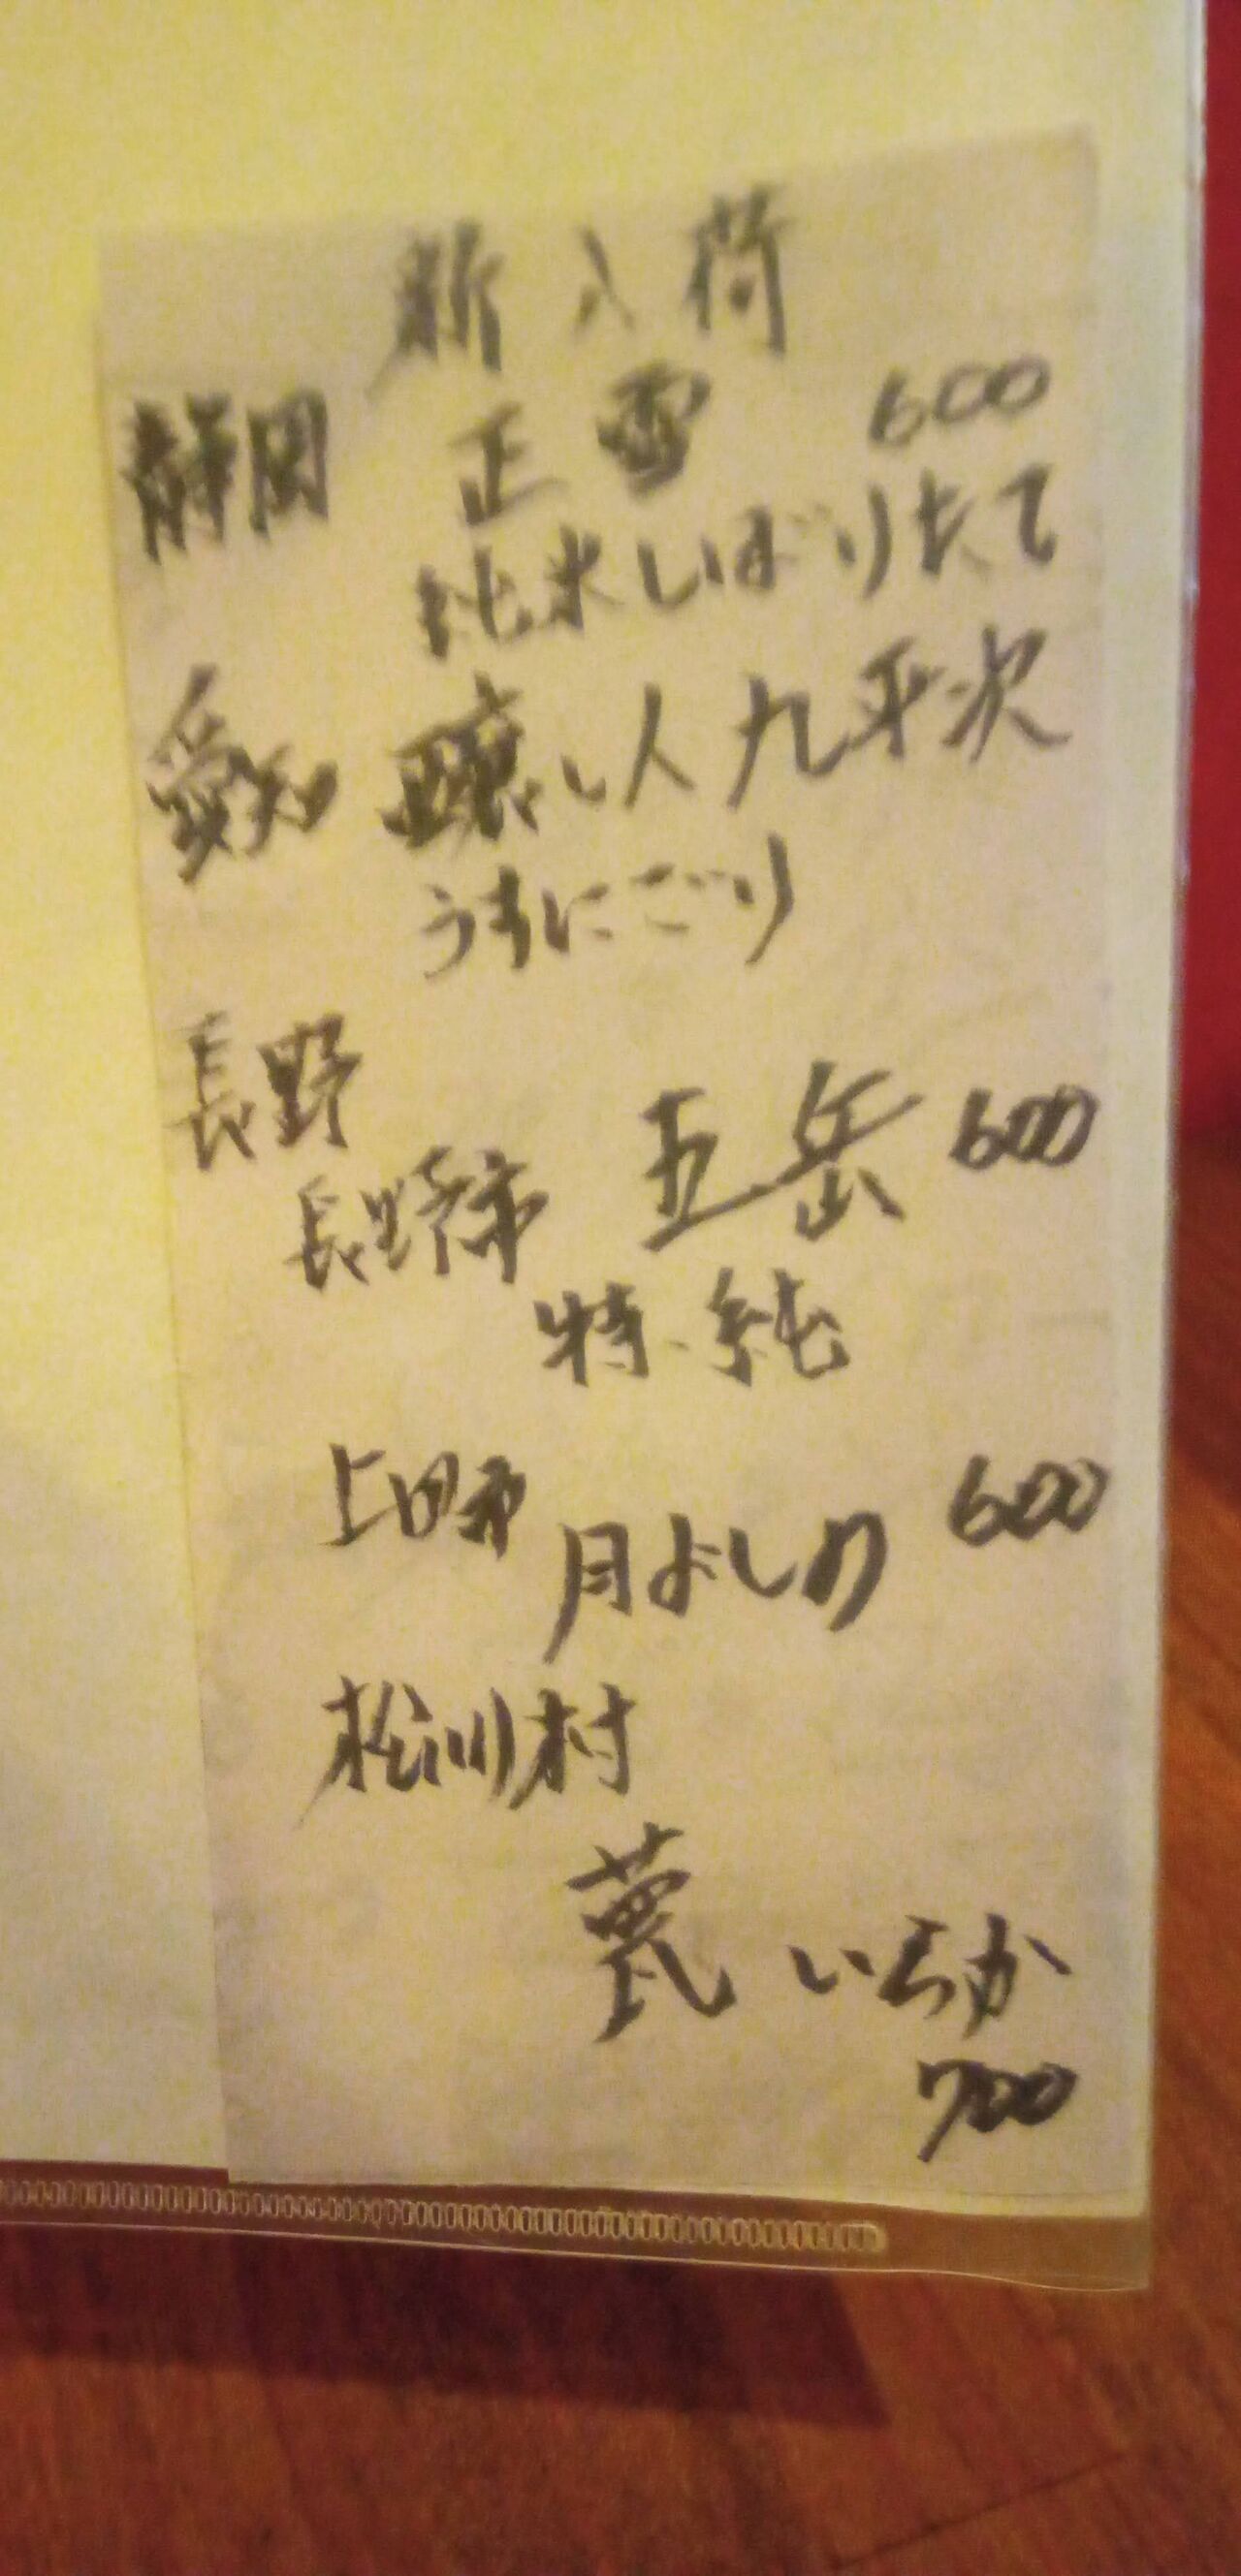 新入荷
静岡 正雪 600
純米しぼりたて
愛知 醸し人九平次
うすにごり
長野
長野市 五岳 600
特・純
上田市 月よしの 600
松川村
甍 いらか
700